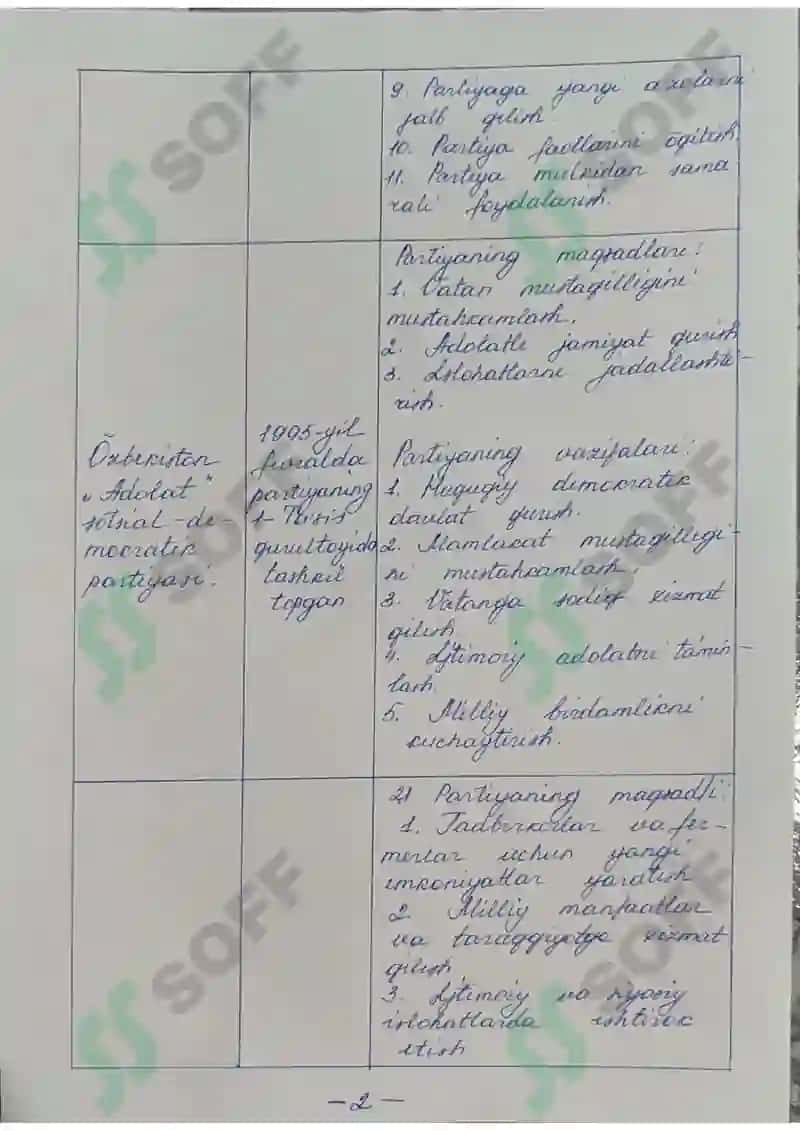 9. Partiyaga yangi azolarni
jalb qilish
10. Partiya faollarini õqitish.
11. Partiya mulkidan sama
rali foydalanish.
Õzbekiston
„Adolat"
sotsial-de-
mocratik
partiyasi.
1995-yil
fevralda
partiyaning
1-Tasis
qurultoyida
tashkil
topgan
Partiyaning maqsadlari:
1. Vatan mustaqilligini
mustahkamlash.
2. Adolatli jamiyat qurish
3. Islohatlarni jadallashti-
rish.
Partiyaning vazifalari:
1. Huquqiy demokratik
davlat qurish.
2. Mamlakat mustaqilligi-
ni mustahkamlash.
3. Vatanga sodiq xizmat
qilish
4. Ijtimoiy adolatni tamin-
lash.
5. Milliy birdamlikni
kuchaytirish.
Partiyaning maqsadi:
1. Tadbirkorlar va fer-
merlar uchun yangi
imkoniyatlar yaratish
2. Milliy manfaatlar
va taraqqiyotga xizmat
qilish
3. Ijtimoiy va siyosiy
islohatlarda ishtirok
etish
-2-
SOFF
SOFF
SOFF
SOFF
SOFF
SOFF